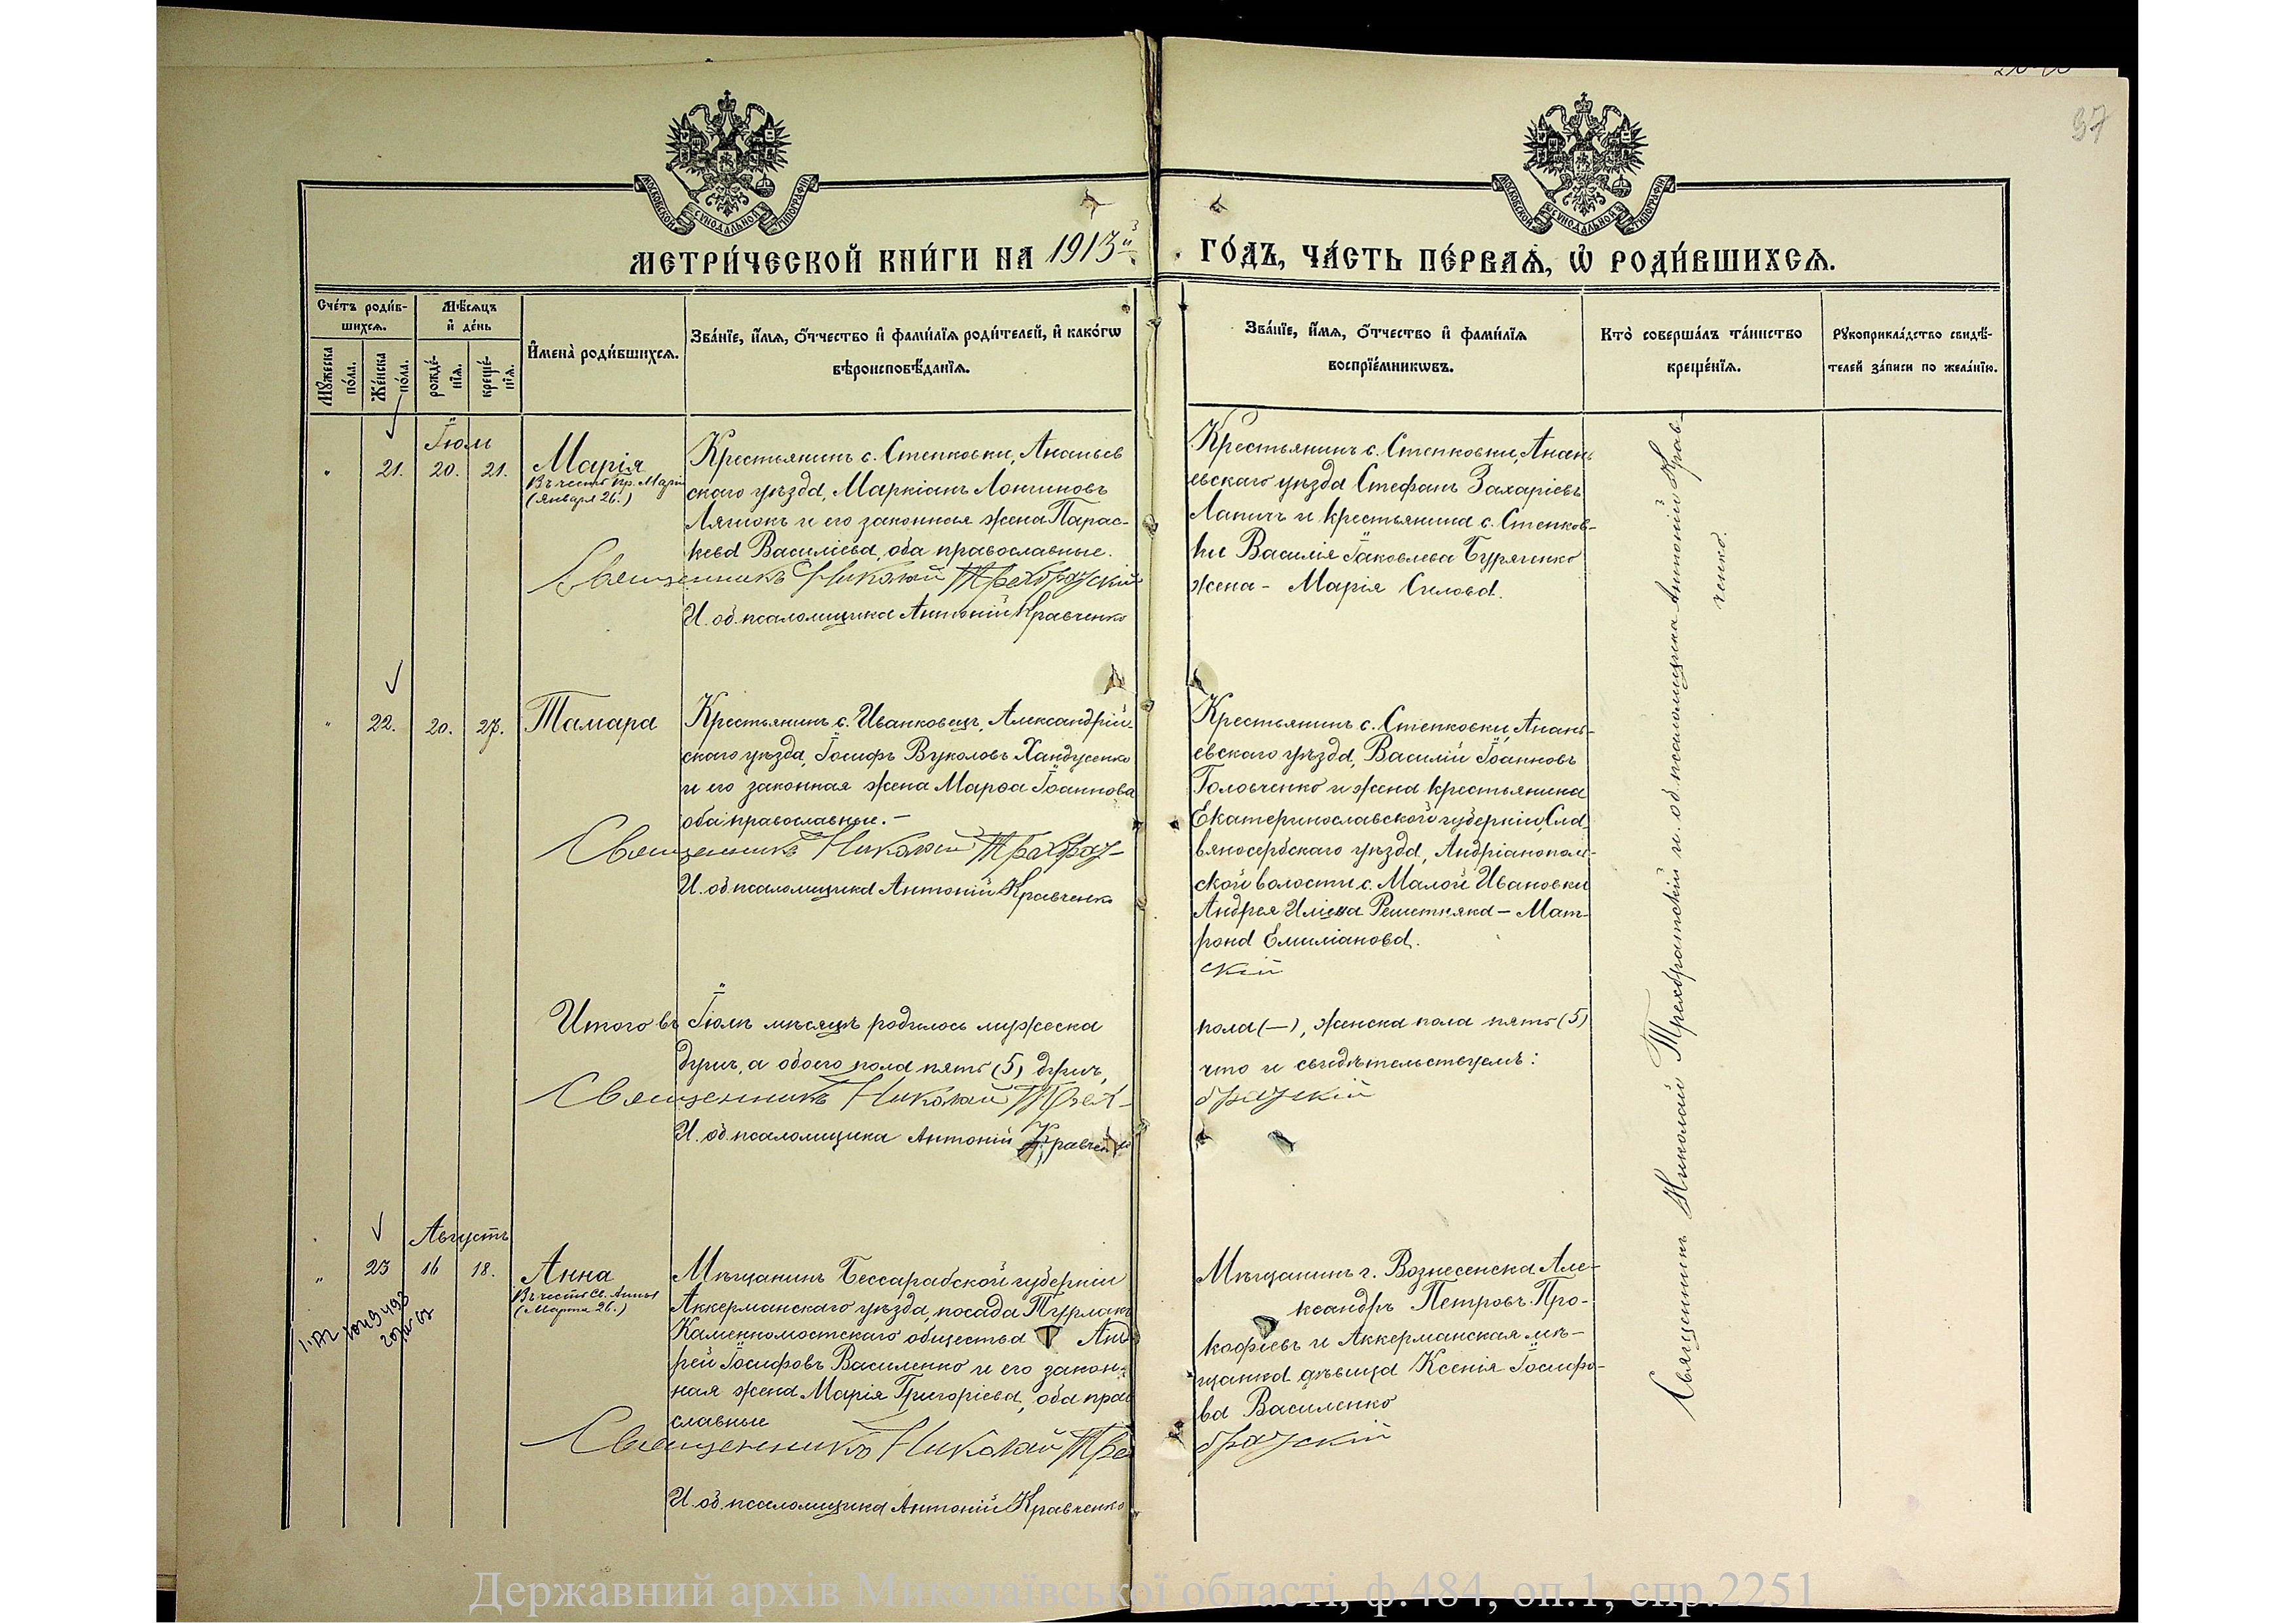 97
МОСКОВСКОЙ СѴНОДАЛЬНОЙ ТИПОГРАФІИ
МОСКОВСКОЙ СѴНОДАЛЬНОЙ ТИПОГРАФІИ
МЕТРИ́ЧЕСКОЙ КНИ́ГИ НА 1913й
ГО́ДЪ, ЧА́СТЬ ПЕ́РВАѦ, Ѽ РОДИ́ВШИХСѦ.
Сче́тъ роди́в-
шихсѧ.
Мꙋ́жеска
по́ла.
Же́нска
по́ла.
Мѣ́сѧцъ
и҆ де́нь
рожде́-
нїѧ.
креще́-
нїѧ.
И҆мена̀ роди́вшихсѧ.
Зва́нїе, и҆́мѧ, ѻ҆́тчество и҆ фами́лїѧ роди́телей, и҆ како́гѡ
вѣроисповѣ́данїѧ.
Зва́нїе, и҆́мѧ, ѻ҆́тчество и҆ фами́лїѧ
воспрїе́мникѡвъ.
Кто̀ соверша́лъ та́инство
креще́нїѧ.
Рꙋкоприкла́дство свидѣ́-
телей за́писи по жела́нїю.
Іюль
" 21. 20. 21.
Марія
Въ честь пр. Маріи
(Января 26.)
Крестьянинъ с. Степковки, Ананьев
скаго уѣзда, Маркіанъ Лонгиновъ
Ляшокъ и его законная жена Парас-
кева Василіева, оба православные.
Священникъ Николай Трехбратскій
И. об. псаломщика Антоній Кравченко
Крестьянинъ с. Степковки, Анань
евскаго уѣзда Стефанъ Захаріевъ
Лапичъ и крестьянина с. Степков-
ки Василія Іаковлева Буряченко
жена - Марія Силова.
" 22. 20. 27.
Тамара
Крестьянинъ с. Иванковецъ, Александрій-
скаго уѣзда, Іосифъ Вуколовъ Хандусенко
и его законная жена Марѳа Іоаннова
оба православные. –
Священникъ Николай Трехбрат-
И. об. псаломщика Антоній Кравченко
Крестьянинъ с. Степковки, Анань-
евскаго уѣзда, Василій Іоанновъ
Головченко и жена крестьянина
Екатеринославской губерніи, Сла-
вяносербскаго уѣзда, Андріанополь-
ской волости с. Малой Ивановки
Андрея Иліева Решетняка – Мат-
рона Емиліанова.
скій
Итого въ Іюлѣ мѣсяцѣ родилось мужеска
пола (—), женска пола пять (5)
душъ, а обоего пола пять (5) душъ,
что и свидѣтельствуемъ:
Священникъ Николай Трех-
братскій
И. об. псаломщика Антоній Кравченко
Августъ
" 23 16 18.
Анна
Въ честь св. Анны
(Марта 26.)
Мѣщанинъ Бессарабской губерніи
Аккерманскаго уѣзда, посада Турлакъ
Каменномостскаго общества Анд
рей Іосифовъ Василенко и его закон-
ная жена Марія Григоріева, оба прав
славные
Священникъ Николай Трех
И. об. псаломщика Антоній Кравченко
Мѣщанинъ г. Вознесенска Але-
ксандръ Петровъ Про-
кофіевъ и Аккерманская мѣ-
щанка дѣвица Ксенія Іосифо-
ва Василенко
братскій
Священникъ Николай Трехбратскій и и. об. псаломщика Антоній Крав-
ченко.
Державний архів Миколаївської області, ф.484, оп.1, спр.2251